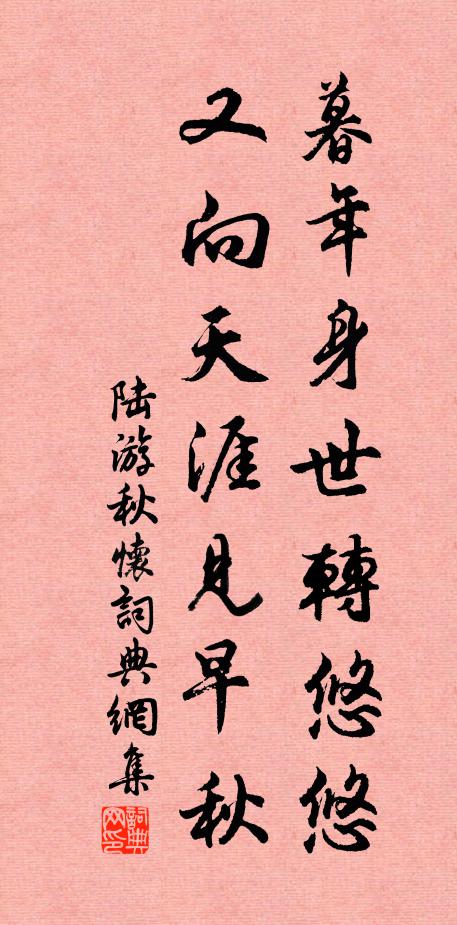 暮年身世轉悠悠
又向天涯見早秋
陆游秋懷詞典網集
詞典网印